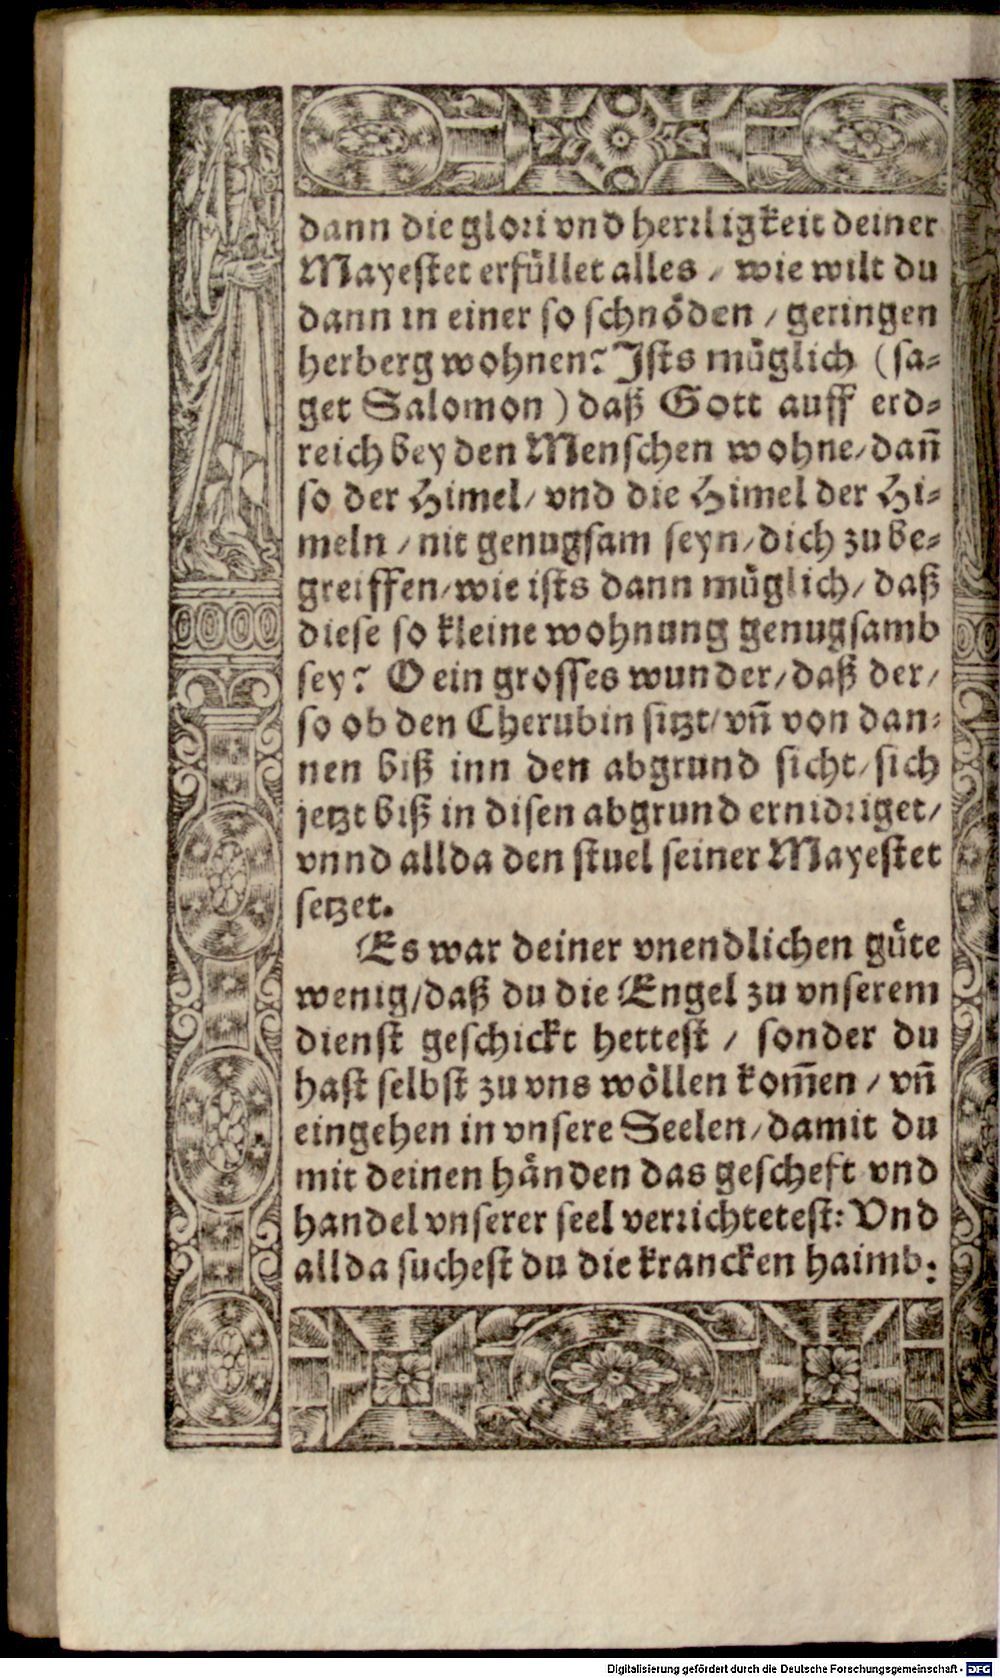 dann die glori vnd herrligkeit deiner
Mayestet erfüllet alles / wie wilt du
dann in einer so schnöden / geringen
herberg wohnen? Ists müglich (sa-
get Salomon) daß Gott auff erd-
reich bey den Menschen wohne/ dañ
so der Himel/ vnd die Himel der Hi-
meln / nit genugsam seyn/ dich zu be-
greiffen/ wie ists dann müglich/ daß
diese so kleine wohnung genugsamb
sey? O ein grosses wunder/ daß der/
so ob den Cherubin sitzt/ vñ von dan-
nen biß inn den abgrund sicht/ sich
jetzt biß in disen abgrund ernidriget/
vnnd allda den stuel seiner Mayestet
setzet.
Es war deiner vnendlichen güte
wenig/ daß du die Engel zu vnserem
dienst geschickt hettest / sonder du
hast selbst zu vns wöllen kom̃en / vñ
eingehen in vnsere Seelen/ damit du
mit deinen händen das gescheft vnd
handel vnserer seel verrichtetest: Vnd
allda suchest du die krancken haimb:
Digitalisierung gefördert durch die Deutsche Forschungsgemeinschaft - DFG